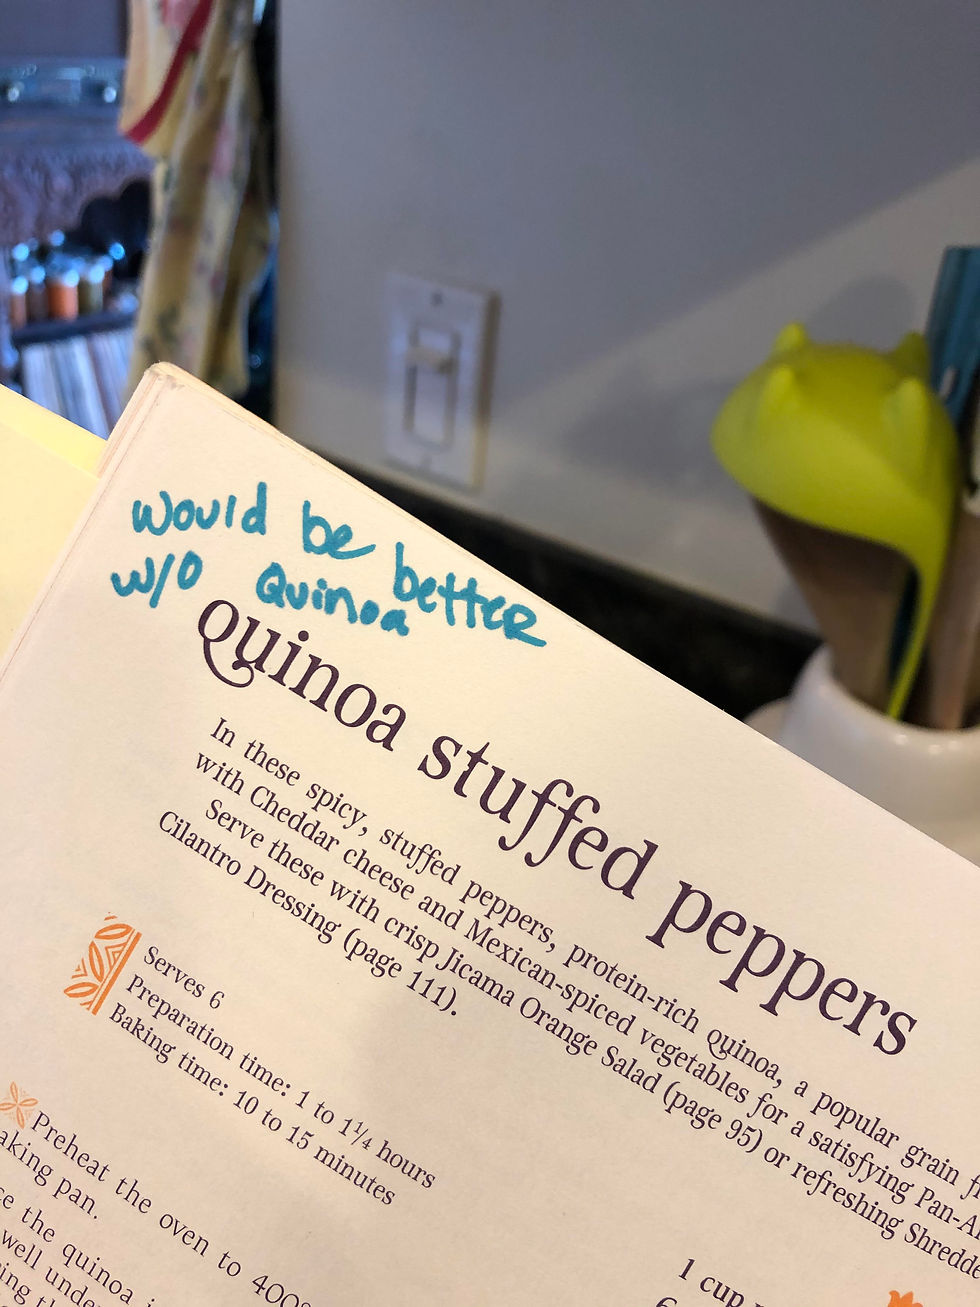 would be better
w/o Quinoa
Quinoa stuffed peppers
In these spicy, stuffed peppers, protein-rich quinoa, a popular grain
with Cheddar cheese and Mexican-spiced vegetables for a satisfying Pan-A
Serve these with crisp Jicama Orange Salad (page 95) or refreshing Shredde
Cilantro Dressing (page 111).
Serves 6
Preparation time: 1 to 1¼ hours
Baking time: 10 to 15 minutes
Preheat the oven to 400°
aking pan.
ce the quinoa
well under
ing th
1 cup